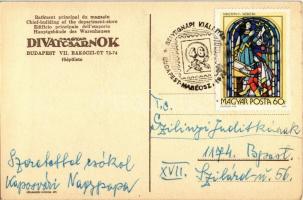 Batiment principal du magasin
Chief-building of the department-store
Edificio principale dell'emporio
Hauptgebäude des Warenhauses
DIVATCSARNOK
BUDAPEST VII. RÁKÓCZI-ÚT 72-74
főépülete
KIÁLLÍTÁS
MABÉOSZ
MAGYAR POSTA 60f
T. C.
Szilinyi Juditkának
1174. Bpest.
XVII. Szilárd u. 56.
Szeretettel csókol
Kaposvári Nagypapa